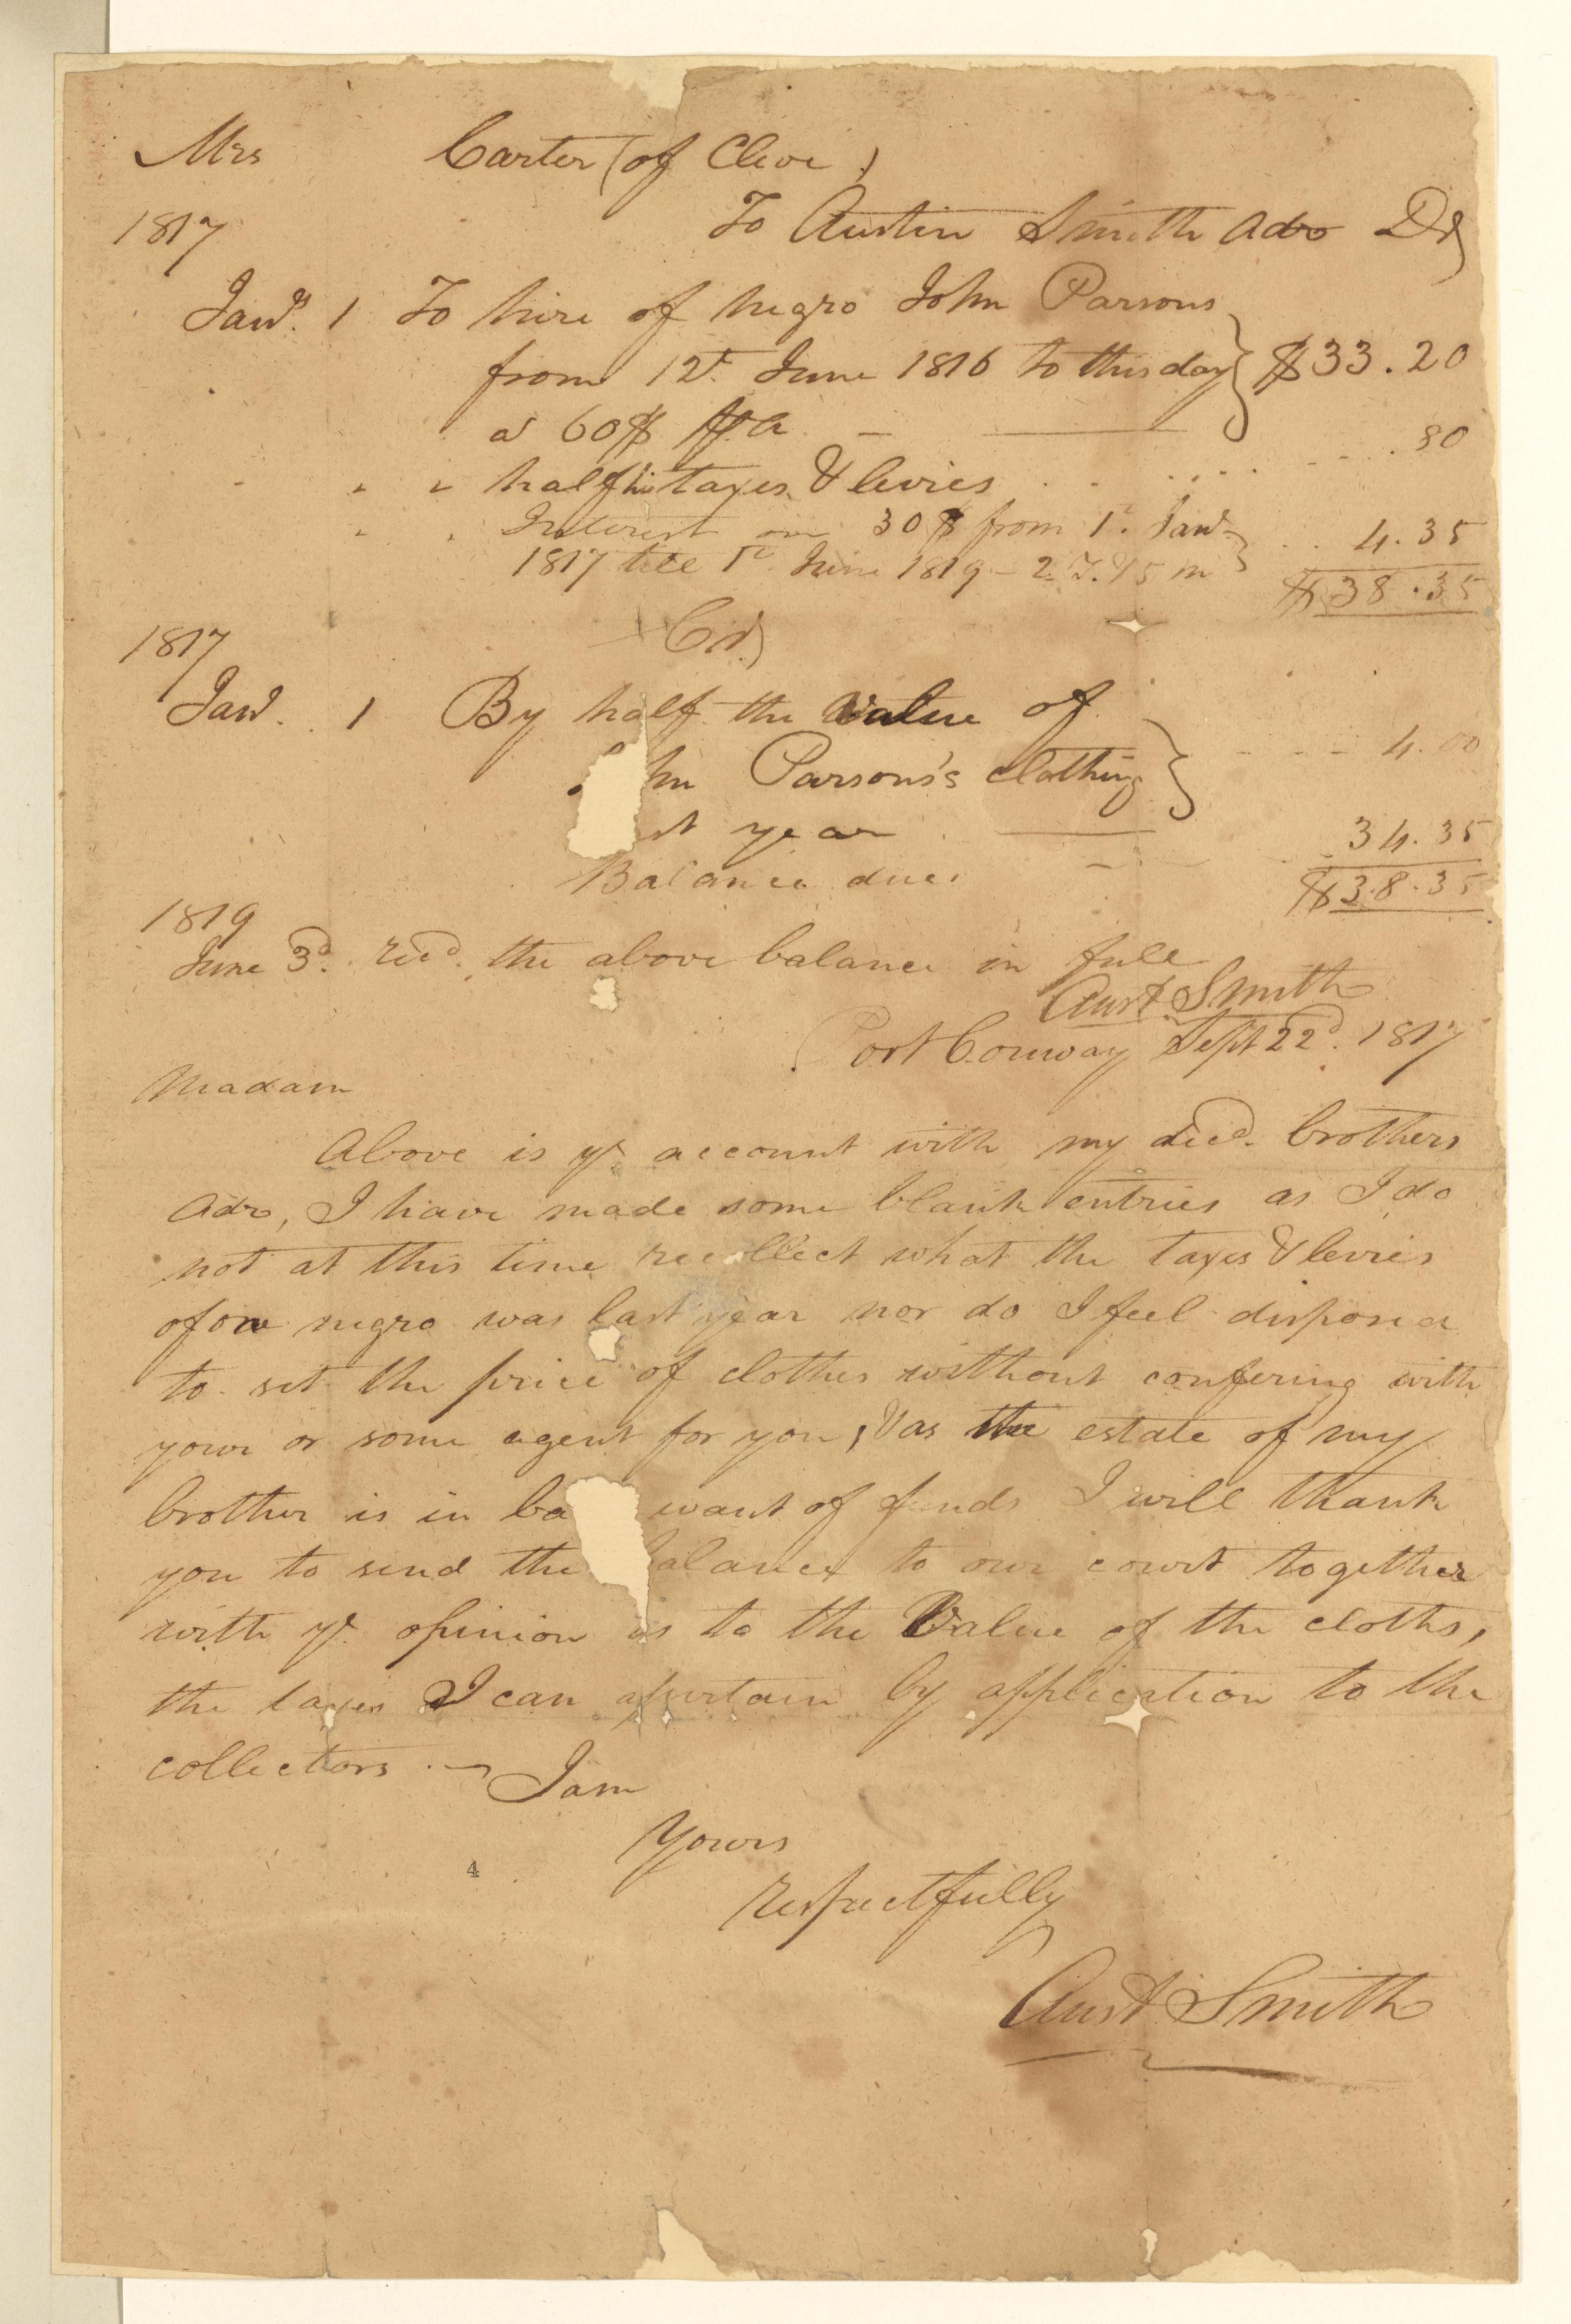 Mrs Carter (of Cleve)
1817 To Austin Smith Adro Dr)
Jany. 1 To hire of negro John Parsons
from 12t. June 1816 to this day } $33.20
a 60$ PA —
" " half his taxes & levies . . . . 80
" " Interest on 30$ from 1t. Jany
1817 till 1t June 1819 - 2 Y. & 5 m } . . 4.35
$38.35
1817 Cr)
Jany. 1 By half the value of
hn Parsons's clothing } - - - 4.00
st year
Balance due. - - 34.35
$38.35
1819
June 3d. recd. the above balance in full
Aust. Smith
Port Conway Sept 22d. 1817
Madam
Above is yr account with my decd. brothers
Adro, I have made some blank entries as I do
not at this time recollect what the taxes & levies
of one negro was last year nor do I feel disposed
to set the price of clothes without confering with
your or some agent for you, & as the estate of my
brother is in ba want of funds I will thank
you to send the alance to our court together
with yr. opinion as to the Value of the cloths,
the taxes I can assertain by application to the
collectors .— I am
Yours
respectfully
4
Aust. Smith